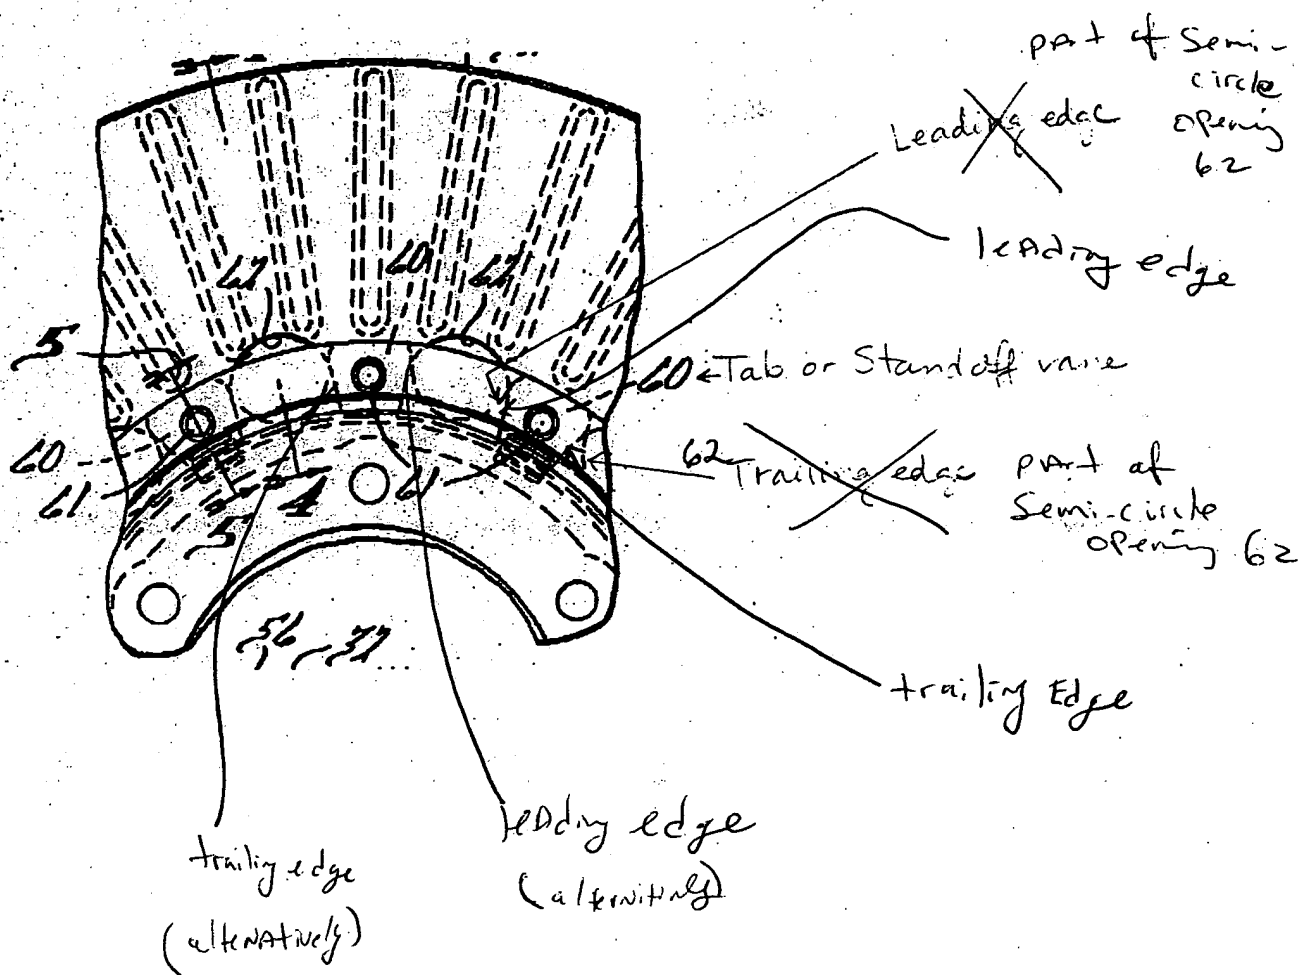 part of Semi-
circle
opening
62
Leading edge
leading edge
62
60
62
5
60
Tab or Standoff vane
60
61
5
4
61
62
Trailing edge
part of
Semi-circle
opening 62
56
37
trailing Edge
leading edge
(alternitively)
trailing edge
(alternatively)